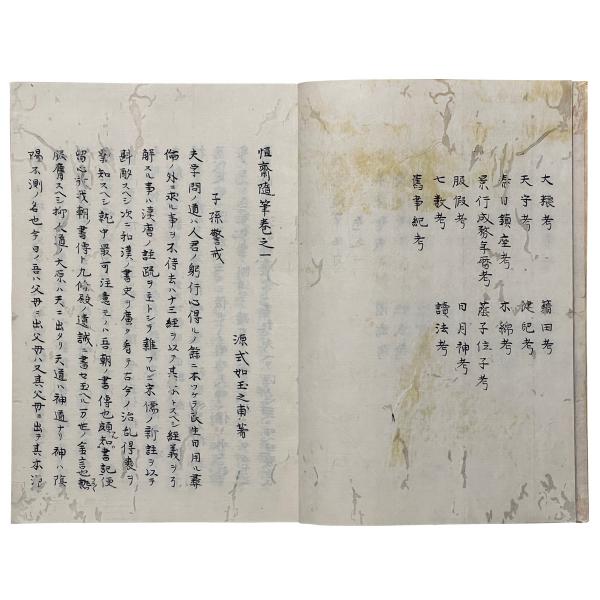 大禳考 籍田考
天守考 健児考
春日鎮座考 木綿考
景行成務年暦考 蔭子位子考
服假考 日月神考
七教考 讀法考
舊事紀考
恒齋随筆卷之一
源式如玉之甫著
子孫警戒
夫学問ノ道ハ人君ノ躬行心得ルノ餘ニ本ツケテ民生日用彝
倫ノ外ニ求ル事ヲ不待古ハ十三経ヲ以テ其本トスヘシ経義ヲ了
解スル事ハ漢唐ノ註疏ヲ主トシテ雜フルニ宋儒ノ新註ヲ以テ
斟酌スヘシ次ニ和漢ノ書史ヲ廣ク看テ古今ノ治乱得喪ヲ
察知スヘシ就中最可注意モノハ吾朝ノ書傳也頗知書記便
留心於我朝書傳ト九條殿ノ遺誡ニ書セ玉ヘル万世ノ金言也
服膺スヘシ抑人道ノ大原ハ天ニ出タリ天道ハ神道ナリ神ハ陰
陽不測ノ名也今日ノ吾ハ父母ニ出父母ハ又其父母ニ出ヲ其本